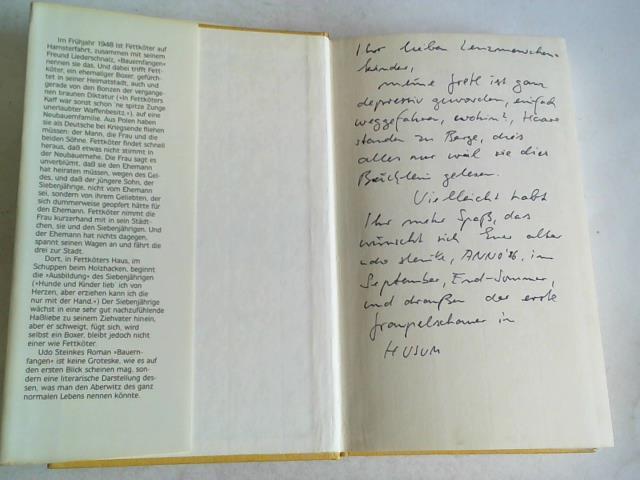 Im Frühjahr 1948 ist Fettköter auf
Hamsterfahrt, zusammen mit seinem
Freund Liederschnalz, »Bauernfangen«
nennen sie das. Und dabei trifft Fett-
köter, ein ehemaliger Boxer, gefürch-
tet in seiner Heimatstadt, auch und
gerade von den Bonzen der vergange-
nen braunen Diktatur (»In Fettköters
Kaff war sonst schon 'ne spitze Zunge
unerlaubter Waffenbesitz.«), auf eine
Neubauernfamilie. Aus Polen haben
sie als Deutsche bei Kriegsende fliehen
müssen: der Mann, die Frau und die
beiden Söhne. Fettköter findet schnell
heraus, daß etwas nicht stimmt in
der Neubauernehe. Die Frau sagt es
unverblümt, daß sie den Ehemann
hat heiraten müssen, wegen des Gel-
des, und daß der jüngere Sohn, der
Siebenjährige, nicht vom Ehemann
sei, sondern von ihrem Geliebten, der
sich dummerweise geopfert hätte für
den Ehemann. Fettköter nimmt die
Frau kurzerhand mit in sein Städt-
chen, sie und den Siebenjährigen. Und
der Ehemann hat nichts dagegen,
spannt seinen Wagen an und fährt die
drei zur Stadt.
Dort, in Fettköters Haus, im
Schuppen beim Holzhacken, beginnt
die »Ausbildung« des Siebenjährigen
(»Hunde und Kinder lieb ich von
Herzen, aber erziehen kann ich die
nur mit der Hand.«) Der Siebenjährige
wächst in eine sehr gut nachzufühlende
Haßliebe zu seinem Ziehvater hinein,
aber er schweigt, fügt sich, wird
selbst ein Boxer, bleibt jedoch nicht
einer wie Fettköter.
Udo Steinkes Roman »Bauern-
fangen« ist keine Groteske, wie es auf
den ersten Blick scheinen mag, son-
dern eine literarische Darstellung des-
sen, was man den Aberwitz des ganz
normalen Lebens nennen könnte.
Ihr lieben Lenzmenschen-
kinder,
meine Gretl ist ganz
depressiv geworden, einfach
weggefahren, wohin?, Haare
standen zu Berge, dies
alles nur weil sie dies
Büchlein gelesen.
Vielleicht habt
Ihr mehr Spaß, das
wünscht sich Euer alter
udo steinke, ANNO '86, im
September, End-Sommer,
und draußen der erste
Graupelschauer in
HUSUM